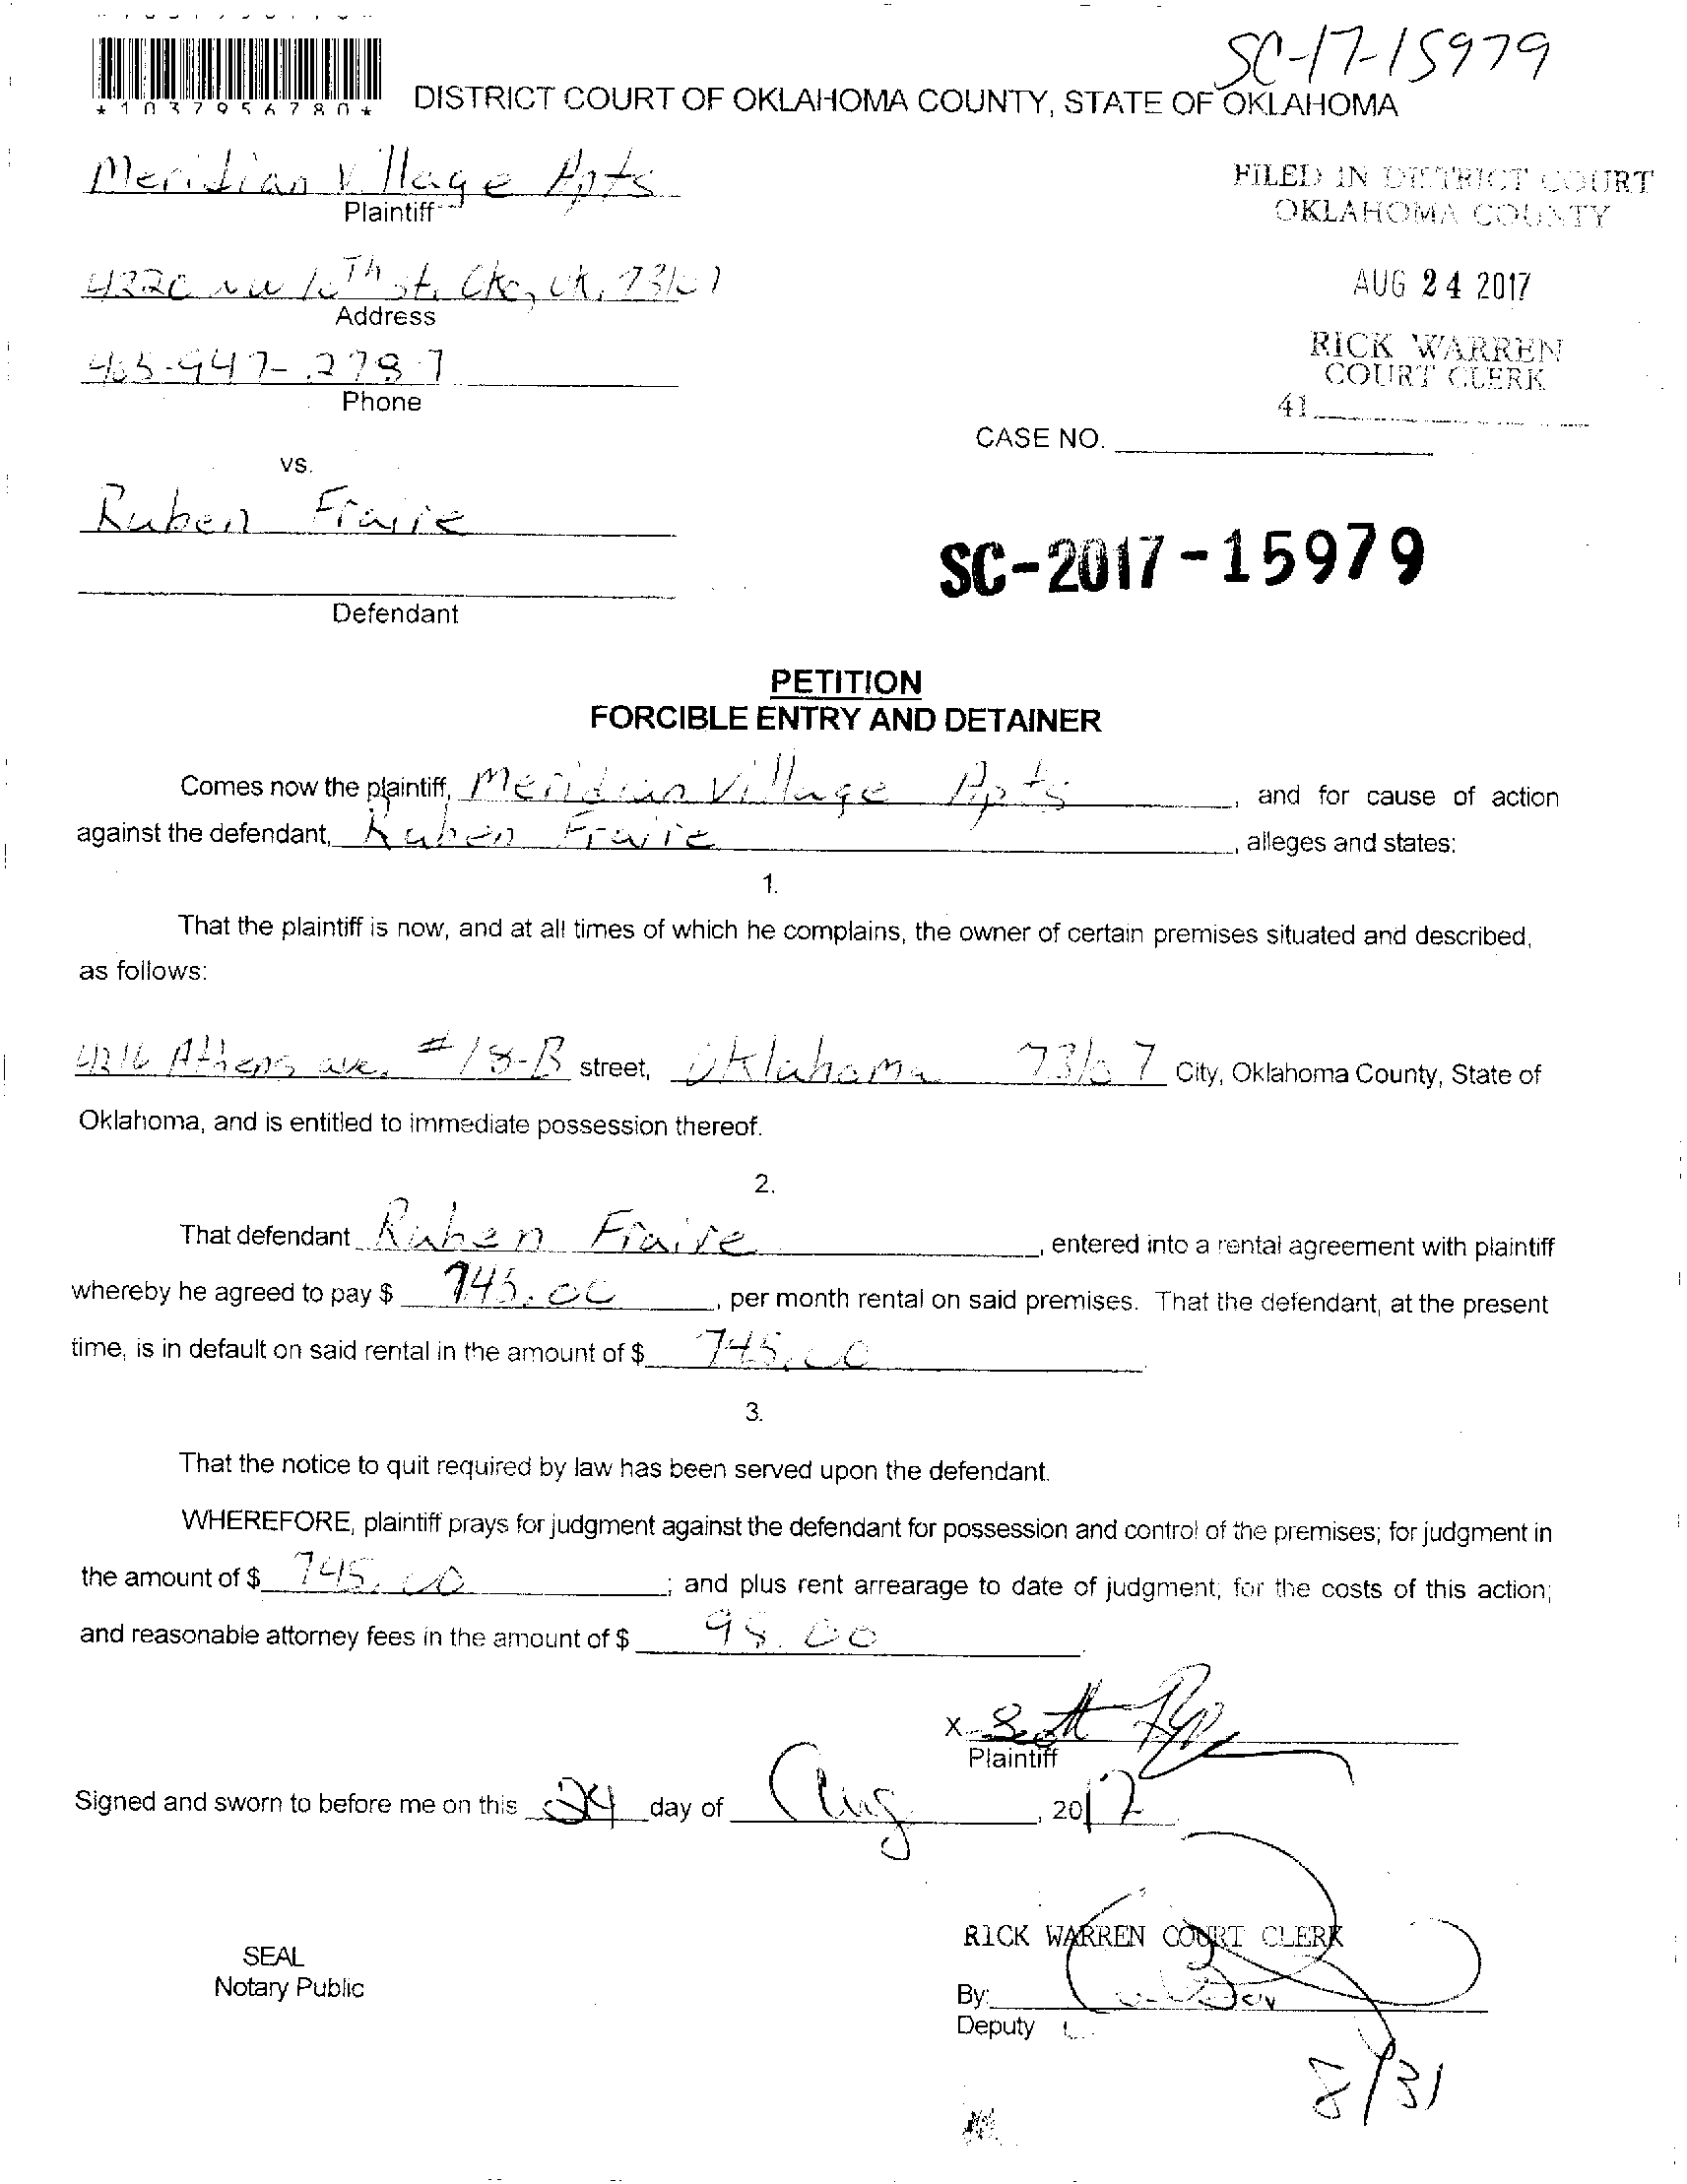 SC-17-15979
*1037956780*
DISTRICT COURT OF OKLAHOMA COUNTY, STATE OF OKLAHOMA
Meridian Village Apts
Plaintiff
FILED IN DISTRICT COURT
OKLAHOMA COUNTY
4220 NW 10th st. Okc, Ok, 73107
Address
AUG 24 2017
405-947-2787
Phone
RICK WARREN
COURT CLERK
41
CASE NO.
vs.
Ruben Fraire
SC-2017-15979
Defendant
PETITION
FORCIBLE ENTRY AND DETAINER
Comes now the plaintiff, Meridian Village Apts, and for cause of action
against the defendant, Ruben Fraire, alleges and states:
1.
That the plaintiff is now, and at all times of which he complains, the owner of certain premises situated and described,
as follows:
4216 Athens ave. #18-B street, Oklahoma 73107 City, Oklahoma County, State of
Oklahoma, and is entitled to immediate possession thereof.
2.
That defendant Ruben Fraire, entered into a rental agreement with plaintiff
whereby he agreed to pay $ 745.00, per month rental on said premises. That the defendant, at the present
time, is in default on said rental in the amount of $ 745.00.
3.
That the notice to quit required by law has been served upon the defendant.
WHEREFORE, plaintiff prays for judgment against the defendant for possession and control of the premises; for judgment in
the amount of $ 745.00; and plus rent arrearage to date of judgment; for the costs of this action;
and reasonable attorney fees in the amount of $ 98.00.
X Scott
Plaintiff
Signed and sworn to before me on this 24 day of Aug, 2017
RICK WARREN COURT CLERK
SEAL
Notary Public
By:
Deputy
8/31